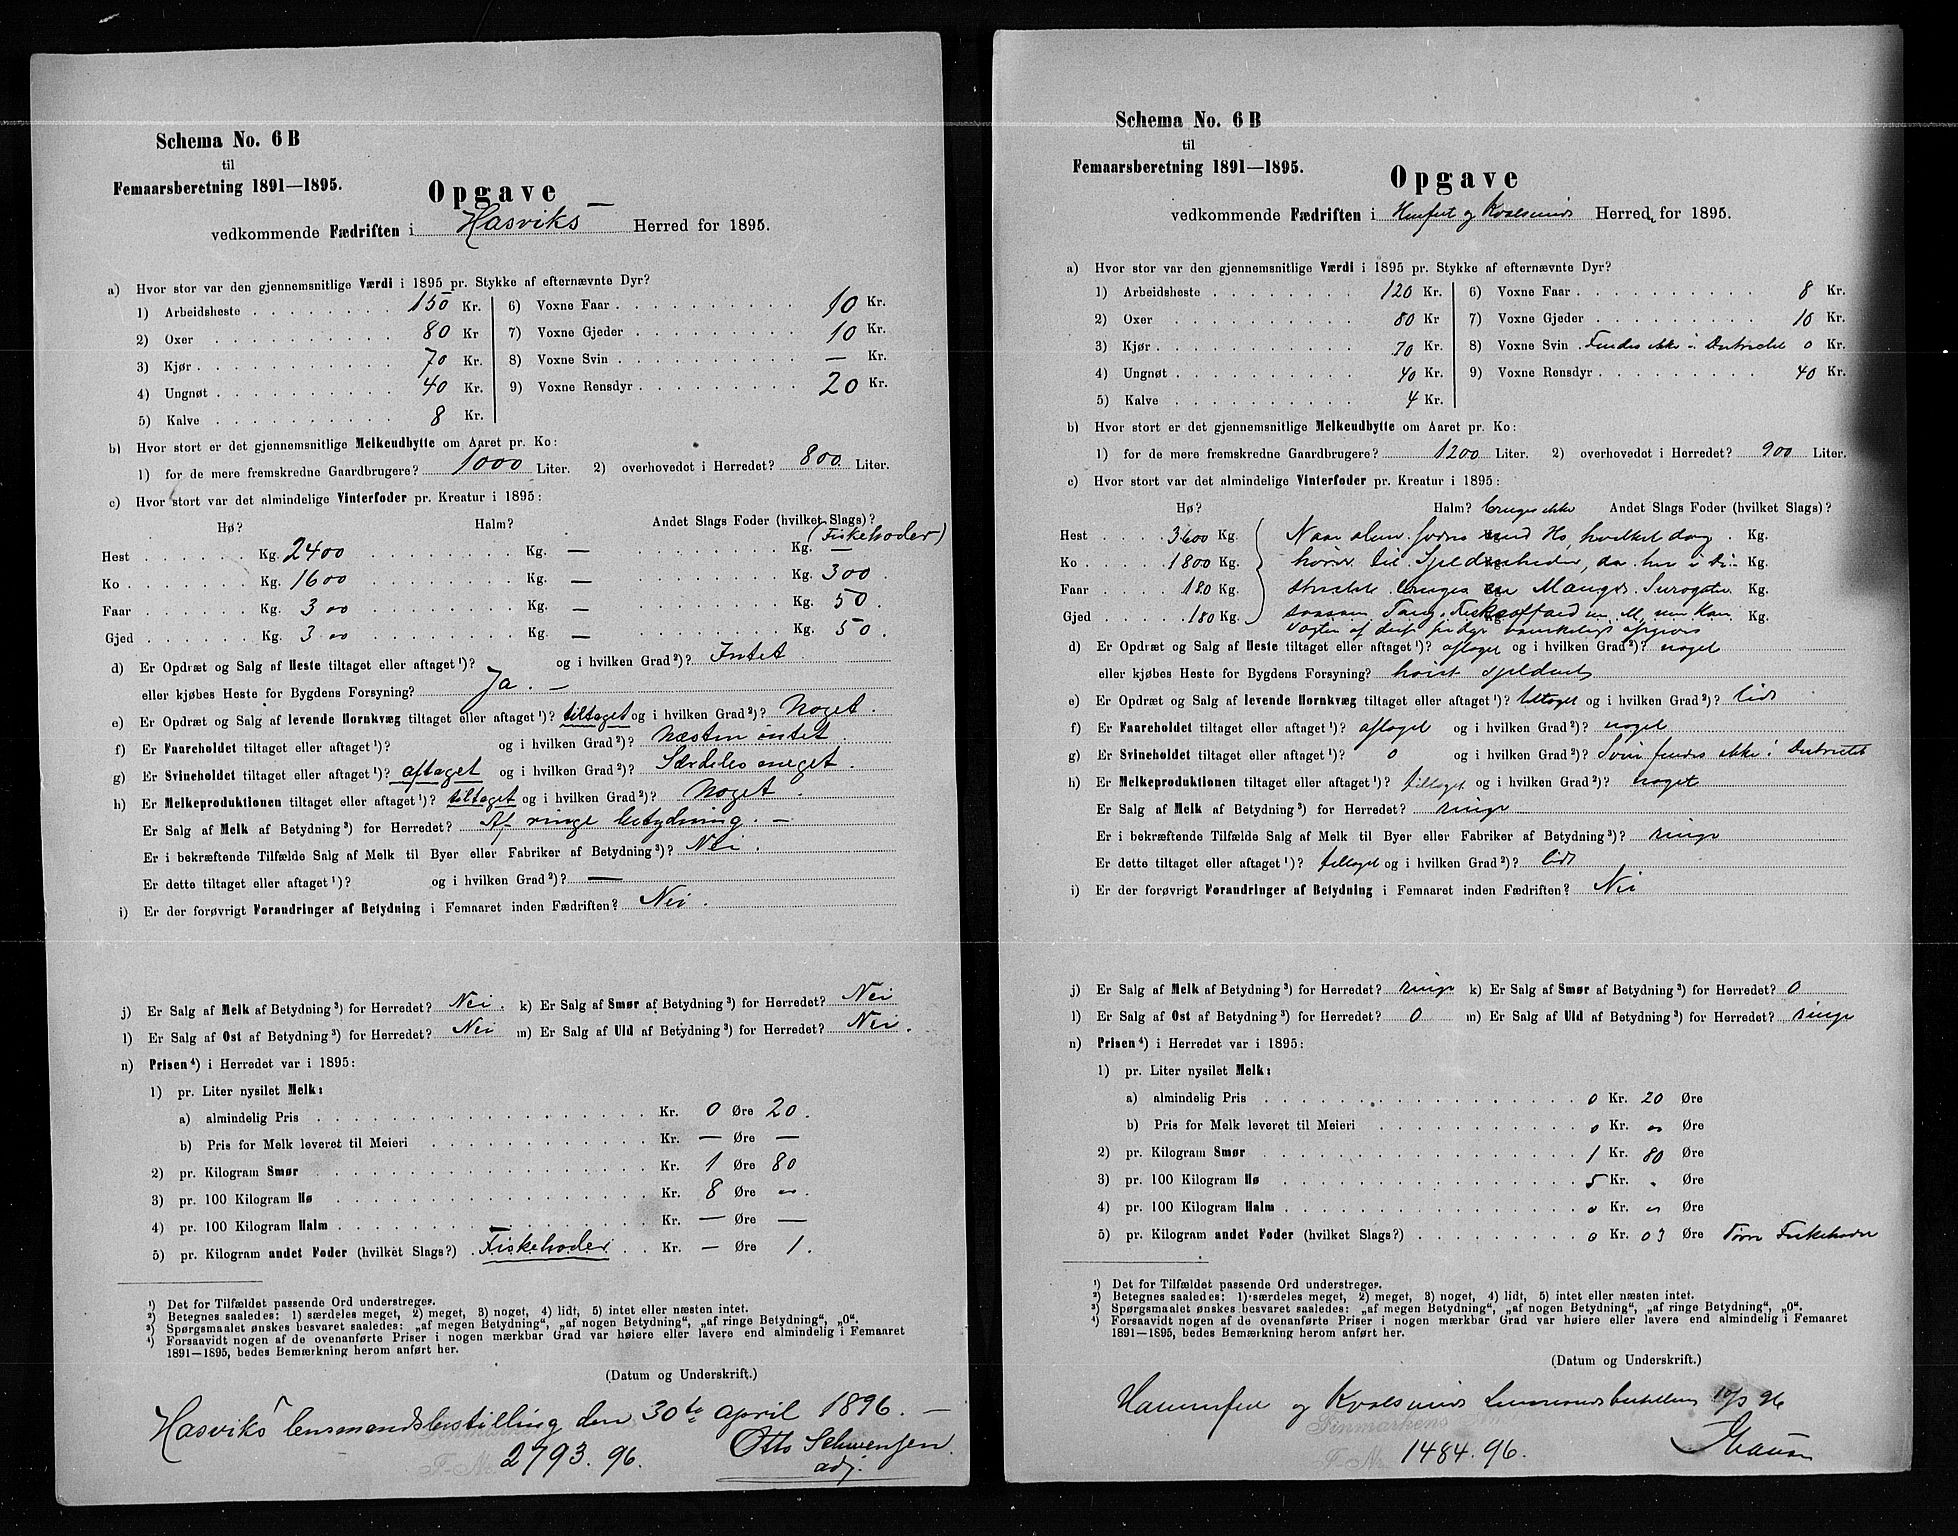 Schema No. 6 B
til
Femaarsberetning 1891—1895.
Opgave
vedkommende Fædriften i Hasviks Herred for 1895.
a) Hvor stor var den gjennemsnitlige Værdi i 1895 pr. Stykke af efternævnte Dyr?
1) Arbeidsheste 150 Kr.
2) Oxer 80 Kr
3) Kjør 70 Kr.
4) Ungnøt 40 Kr.
5) Kalve 8 Kr.
6) Voxne Faar 10 Kr.
7) Voxne Gjeder 10 Kr.
8) Voxne Svin — Kr.
9) Voxne Rensdyr 20 Kr.
b) Hvor stort er det gjennemsnitlige Melkeudbytte om Aaret pr. Ko:
1) for de mere fremskredne Gaardbrugere? 1000 Liter. 2) overhovedet i Herredet? 800 Liter.
c) Hvor stort var det almindelige Vinterfoder pr. Kreatur i 1895:
Hø? Halm? Andet Slags Foder (hvilket Slags)?
(Fiskehoder)
Hest Kg. 2400 Kg. — Kg. —
Ko Kg. 1600 Kg. — Kg. 300
Faar Kg. 300 Kg. — Kg. 50
Gjed Kg. 300 Kg. — Kg. 50
d) Er Opdræt og Salg af Heste tiltaget eller aftaget¹)? og i hvilken Grad²)? Intet
eller kjøbes Heste for Bygdens Forsyning? Ja. —
e) Er Opdræt og Salg af levende Hornkvæg tiltaget eller aftaget¹)? tiltaget og i hvilken Grad²)? Noget.
f) Er Faareholdet tiltaget eller aftaget¹)? og i hvilken Grad²)? Næsten intet.
g) Er Svineholdet tiltaget eller aftaget¹)? aftaget og i hvilken Grad²)? Særdeles meget.
h) Er Melkeproduktionen tiltaget eller aftaget¹)? tiltaget og i hvilken Grad²)? Noget.
Er Salg af Melk af Betydning³) for Herredet? Af ringe betydning. —
Er i bekræftende Tilfælde Salg af Melk til Byer eller Fabriker af Betydning³)? Nei.
Er dette tiltaget eller aftaget¹)? og i hvilken Grad²)? —
i) Er der forøvrigt Forandringer af Betydning i Femaaret inden Fædriften? Nei.
j) Er Salg af Melk af Betydning³) for Herredet? Nei. k) Er Salg af Smør af Betydning³) for Herredet? Nei
l) Er Salg af Ost af Betydning³) for Herredet? Nei m) Er Salg af Uld af Betydning³) for Herredet? Nei.
n) Prisen⁴) i Herredet var i 1895:
1) pr. Liter nysilet Melk:
a) almindelig Pris Kr. 0 Øre 20.
b) Pris for Melk leveret til Meieri Kr. — Øre —
2) pr. Kilogram Smør Kr. 1 Øre 80
3) pr. 100 Kilogram Hø Kr. 8 Øre
4) pr. 100 Kilogram Halm Kr. — Øre —
5) pr. Kilogram andet Foder (hvilket Slags?) Fiskehoder Kr. — Øre 1.
¹) Det for Tilfældet passende Ord understreges.
²) Betegnes saaledes: 1) særdeles meget, 2) meget, 3) noget, 4) lidt, 5) intet eller næsten intet.
³) Spørgsmaalet ønskes besvaret saaledes: „af megen Betydning“, „af nogen Betydning“, „af ringe Betydning“, „0“.
⁴) Forsaavidt nogen af de ovenanførte Priser i nogen mærkbar Grad var høiere eller lavere end almindelig i Femaaret
1891—1895, bedes Bemærkning herom anført her.
(Datum og Underskrift.)
Hasviks lensmandsbestilling den 30te april 1896. —
2793. 96. Otto Schwensen
adj.
Schema No. 6 B
til
Femaarsberetning 1891—1895.
Opgave
vedkommende Fædriften i Hmfest og Kvalsunds Herred for 1895.
a) Hvor stor var den gjennemsnitlige Værdi i 1895 pr. Stykke af efternævnte Dyr?
1) Arbeidsheste 120 Kr.
2) Oxer 80 Kr
3) Kjør 70 Kr.
4) Ungnøt 40 Kr.
5) Kalve 4 Kr.
6) Voxne Faar 8 Kr.
7) Voxne Gjeder 10 Kr.
8) Voxne Svin Findes ikke i Distriktet 0 Kr.
9) Voxne Rensdyr 40 Kr.
b) Hvor stort er det gjennemsnitlige Melkeudbytte om Aaret pr. Ko:
1) for de mere fremskredne Gaardbrugere? 1200 Liter. 2) overhovedet i Herredet? 900 Liter.
c) Hvor stort var det almindelige Vinterfoder pr. Kreatur i 1895:
Hø? Halm? bruges ikke Andet Slags Foder (hvilket Slags)?
Hest 3600 Kg. Naar alene fores med Hø, hvilket dog Kg.
Ko 1800 Kg. hører til Sjeldenheder, da her i Di- Kg.
Faar 180 Kg. striktet bruges en Mængde Surogater Kg.
Gjed 180 Kg. saasom Tang, Fiskeaffald m. M. Kg.
d) Er Opdræt og Salg af Heste tiltaget eller aftaget¹)? aftaget og i hvilken Grad²)? noget
eller kjøbes Heste for Bygdens Forsyning? høist sjeldent
e) Er Opdræt og Salg af levende Hornkvæg tiltaget eller aftaget¹)? tiltaget og i hvilken Grad²)? lidt
f) Er Faareholdet tiltaget eller aftaget¹)? aftaget og i hvilken Grad²)? noget
g) Er Svineholdet tiltaget eller aftaget¹)? 0 og i hvilken Grad²)? Svin findes ikke i Distriktet
h) Er Melkeproduktionen tiltaget eller aftaget¹)? tiltaget og i hvilken Grad²)? noget
Er Salg af Melk af Betydning³) for Herredet? ringe
Er i bekræftende Tilfælde Salg af Melk til Byer eller Fabriker af Betydning³)? ringe
Er dette tiltaget eller aftaget¹)? tiltaget og i hvilken Grad²)? lidt
i) Er der forøvrigt Forandringer af Betydning i Femaaret inden Fædriften? Nei
j) Er Salg af Melk af Betydning³) for Herredet? ringe k) Er Salg af Smør af Betydning³) for Herredet? 0
l) Er Salg af Ost af Betydning³) for Herredet? 0 m) Er Salg af Uld af Betydning³) for Herredet? ringe
n) Prisen⁴) i Herredet var i 1895:
1) pr. Liter nysilet Melk:
a) almindelig Pris 0 Kr. 20 Øre
b) Pris for Melk leveret til Meieri 0 Kr. Øre
2) pr. Kilogram Smør 1 Kr. 80 Øre
3) pr. 100 Kilogram Hø 5 Kr. Øre
4) pr. 100 Kilogram Halm 0 Kr. Øre
5) pr. Kilogram andet Foder (hvilket Slags?) 0 Kr. 03 Øre Tørre Fiskehoder
¹) Det for Tilfældet passende Ord understreges.
²) Betegnes saaledes: 1) særdeles meget, 2) meget, 3) noget, 4) lidt, 5) intet eller næsten intet.
³) Spørgsmaalet ønskes besvaret saaledes: „af megen Betydning“, „af nogen Betydning“, „af ringe Betydning“, „0“.
⁴) Forsaavidt nogen af de ovenanførte Priser i nogen mærkbar Grad var høiere eller lavere end almindelig i Femaaret
1891—1895, bedes Bemærkning herom anført her.
(Datum og Underskrift.)
Hammerfest og Kvalsunds Lensmandsbestilling 10/3 96
Finmarkens
1484. 96.